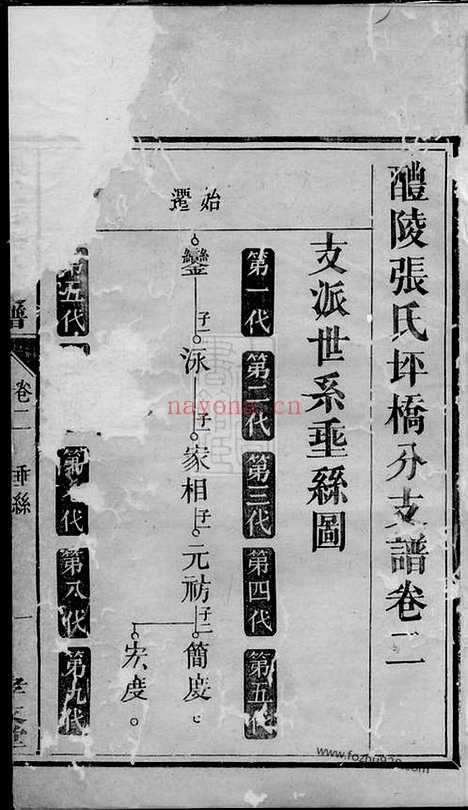 醴陵張氏坪橋分支譜卷二
支派世系垂絲圖
第一代 第二代 第三代 第四代 第五代
始遷
鑾 子一 泳 子一 家相 子一 元祊 子二 簡度
宏度
第五代 第 代 第八代 第九代
譜 卷二 垂絲 一
nayona.cn
www.fozhu920.com